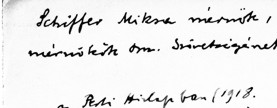 Schiffer Miksa mérnök,
mérnökök Orsz. Szövetségének
a Pesti Hirlapban (1918.